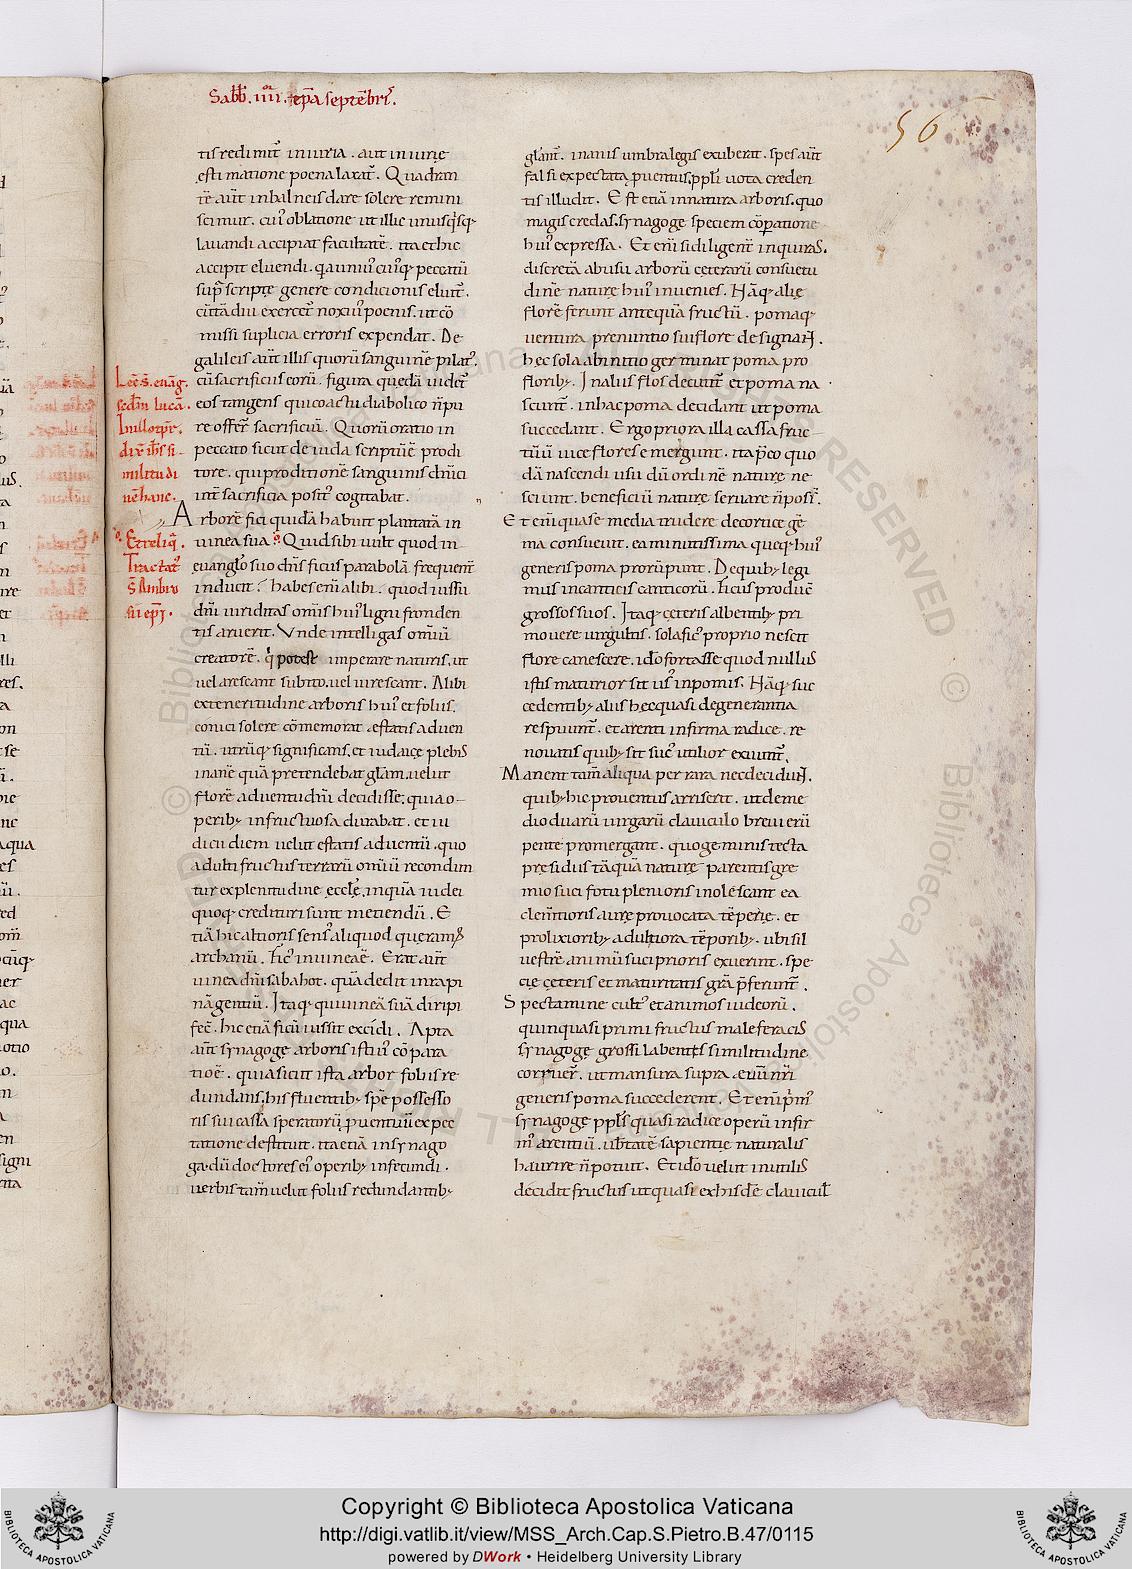 Sabb̄. iiii. tēpā septēbrī.
56
tis redimit̄ iniuria. aut iniurię
ęstimatione poena laxat̄. Quadran
tē aūt inbalneis dare solere remini
scimur. cui' oblatione ut illic unusq̇sq;
lauandi accipiat facultatē. ita et hic
accipit eluendi. q̄a uniu' cui'q; peccatū
sup̄ scriptę genere condicionis eluit̄.
cū tādiu exercet̄ noxiu' poenis. ut cō
missi suplicia erroris expendat. De
galileis aūt illis quorū sanguinē pilat'
cū sacrificiis eorū. figura quędā uidet̄
eos tangens qui coactu diabolico n̄ pu
re offert̄ sacrificiū. Quorū oratio in
peccato sicut de iuda scriptū ē prodi
tore. qui proditionē sanguinis dn̄ici
int̄ sacrificia posit' cogitabat.
Lec̄. s̄. euāg̅.
scdm̄ lucā.
In illo tp̄r̄e.
dix̄. ih̄s si
militudi
nē hanc.
Et reliq̄.
Tractat'
S̄ Ambro
sii ep̄i.
Arborē fici quidā habuit plantatā in
uinea sua. Quid sibi uult quod in
euangl̄o suo dn̄s ficus parabolā frequent̄
inducit? habes em̄ alibi. quod iussu
dn̄i uiriditas om̄is hui' ligni fronden
tis aruerit. Unde intelligas om̄iū
creatorē. q̄ potest imperare naturis. ut
uel arescant subito. uel uirescant. Alibi
ex teneritudine arboris hui' et foliis.
conici solere cōmemorat. ęstatis aduen
tū. utrūq; significans. et iudaicę plebis
inanē quā pretendebat glam̄. uelut
florē aduentu dn̄i decidisse. quia o
perib; infructuosa durabat. et iu
dicii diem uelut ęstatis aduentū. quo
adulti fructus terrarū om̄iū recondun
tur ex plenitudine ęcclę̄. in quā iudei
quoq; credituri sunt metiendū. E
tiā hic altioris sens' aliquod queram'
archanū. Fic' in uinea ē. Erat aūt
uinea dn̄i sabahot. quā dedit in rapi
nā gentiū. Itaq; qui uineā suā diripi
fec̄. hic etiā ficū iussit excidi. Apta
aūt synagogę arboris isti' cōpara
tio ē. quia sicut ista arbor foliis re
dundans. his fluentib; spē possesso
ris sui cassa speratorū p̄uentuū expec
tatione destituit. ita etiā in synago
ga. dū doctores ei' operib; infecundi.
uerbis tam̄ uelut foliis redundantib;
glānt̄. inanis umbra legis exuberat. spes aūt
falsi expectatą p̄uentus. ppl̄i uota creden
tis illudit. Est etiā in natura arboris. quo
magis credas. synagogę speciem cōparatione
hui' expressa. Et em̄ si diligent̄ inquiras.
discretā ab usu arborū cęterarū consuetu
dinē naturę hui' inuenies. Hāq; alię
florē ferunt antequā fructū. pomaq;
uentura prenuntio sui flore designant.
hęc sola ab initio germinat poma pro
florib;. In aliis flos decutit̄ et poma na
scunt̄. in hac poma decidunt ut poma
succedant. Ergo priora illa cassa fruc
tuū uice flores emergunt. ita p̄eo quo
dā nascendi usu dū ordinē naturę ne
sciunt. beneficiū naturę seruare n̄ poss̄t.
Et em̄ quase media trudere de cortice gē
ma consueuit. ea minutissima queq; hui'
generis poma prorūpunt. De quib; legi
mus in canticis canticorū. Ficus produc̄
grossos suos. Itaq; cęteris albentib; pri
mo uere uirgultis. sola fic' proprio nescit
flore canescere. ido fortasse quod nullus
istis maturior sit us' in pomis. Hāq; suc
cedentib; aliis hęc quasi degenerantia
respuunt̄. et arenti infirma radice. re
nouatis quib; sit suc' utilior exuunt̄.
Manent tam̄ aliqua per rara nec decidunt.
quib; hic prouentus arriserit. ut de me
dio duarū uirgarū clauiculo breui eru
pente promergant. quo geminis tecta
pręsidiis tāquā naturę parentis gre
mio suci fotu plenioris inolescant ea
clem̄tioris aurę prouocata tēperię. et
prolixiorib; adultiora tēporib;. ubi sil
uestrē animū suci prioris exuerint. spe
cię cęteris et maturitatis gr̄a p̄ferunt̄.
Spectamine cult' et animos iudeorū.
qui nquasi primi fructus male feracis
synagogę grossi labentes similitudine
corruer̄. ut mansura supra ęuū nr̄i
generis poma succederent. Et em̄ p̄m'
synagogę ppl̄s quasi radice operū infir
m' arentiū. ub̄tatē sapientię naturalis
haurire n̄ potuit. Et ido uelut inutilis
decidit fructus ut quasi ex hisdē clauicul̄
Copyright © Biblioteca Apostolica Vaticana
http://digi.vatlib.it/view/MSS_Arch.Cap.S.Pietro.B.47/0115
powered by DWork • Heidelberg University Library